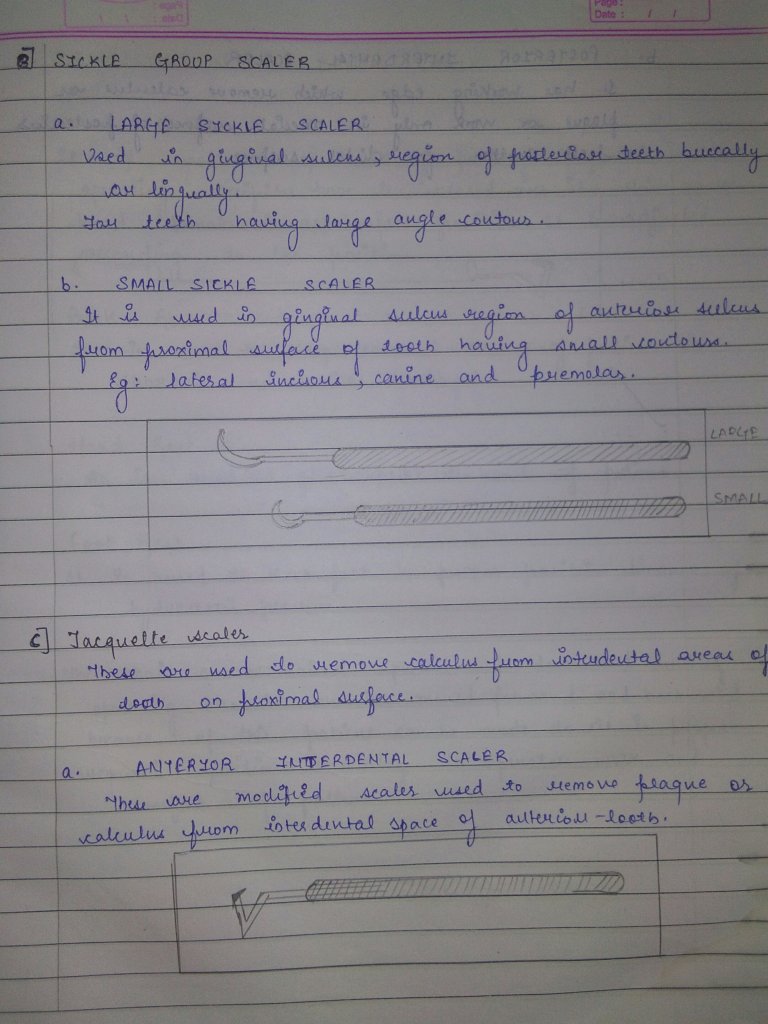 Page :
Date : / /
B] SICKLE GROUP SCALER
a. LARGE SICKLE SCALER
Used in ginginal sulcus, region of posterior teeth buccally
or lingually.
For teeth having large angle contour.
b. SMALL SICKLE SCALER
It is used in ginginal sulcus region of anterior sulcus
from proximal surface of tooth having small contours.
Eg: lateral incisors, canine and premolar.
LARGE
SMALL
C] Jacquette scaler
These are used to remove calculus from interdental areas of
tooth on proximal surface.
a. ANTERIOR INTERDENTAL SCALER
These are modified scaler used to remove plaque or
calculus from interdental space of anterior-tooth.